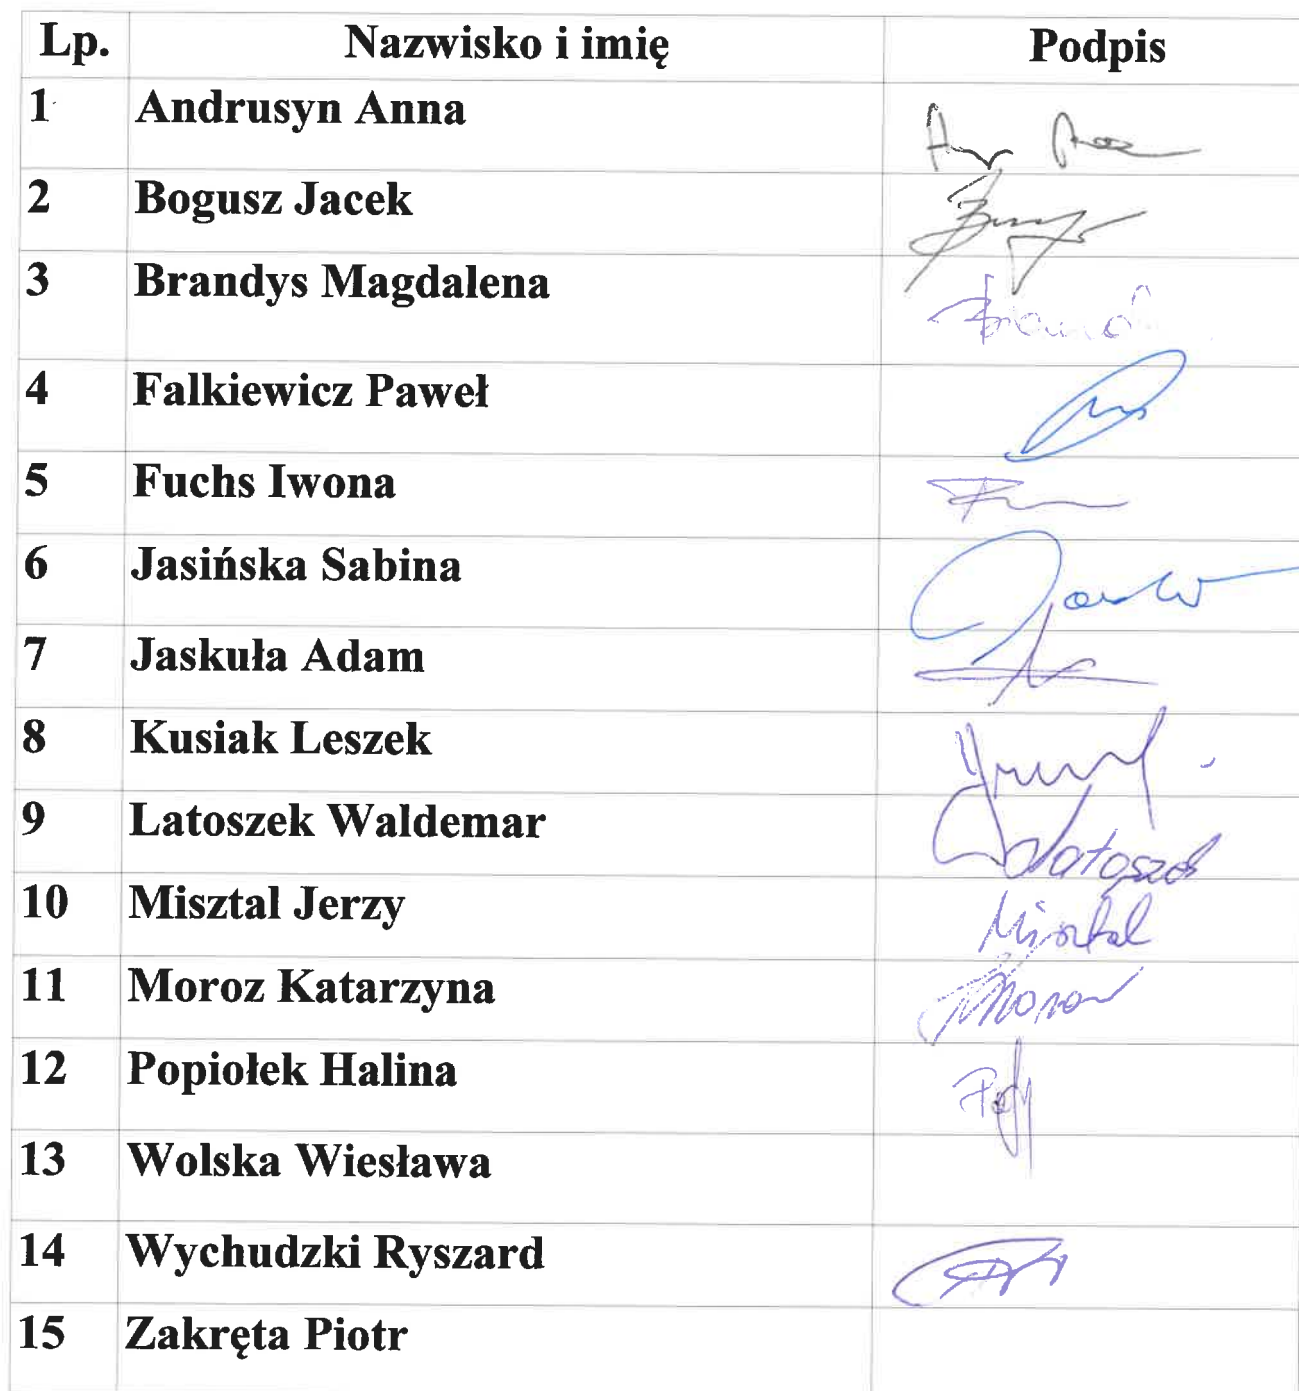 Lp. Nazwisko i imię Podpis
1 Andrusyn Anna
2 Bogusz Jacek
3 Brandys Magdalena
4 Falkiewicz Paweł
5 Fuchs Iwona
6 Jasińska Sabina
7 Jaskuła Adam
8 Kusiak Leszek
9 Latoszek Waldemar
10 Misztal Jerzy Misztal
11 Moroz Katarzyna
12 Popiołek Halina
13 Wolska Wiesława
14 Wychudzki Ryszard
15 Zakręta Piotr